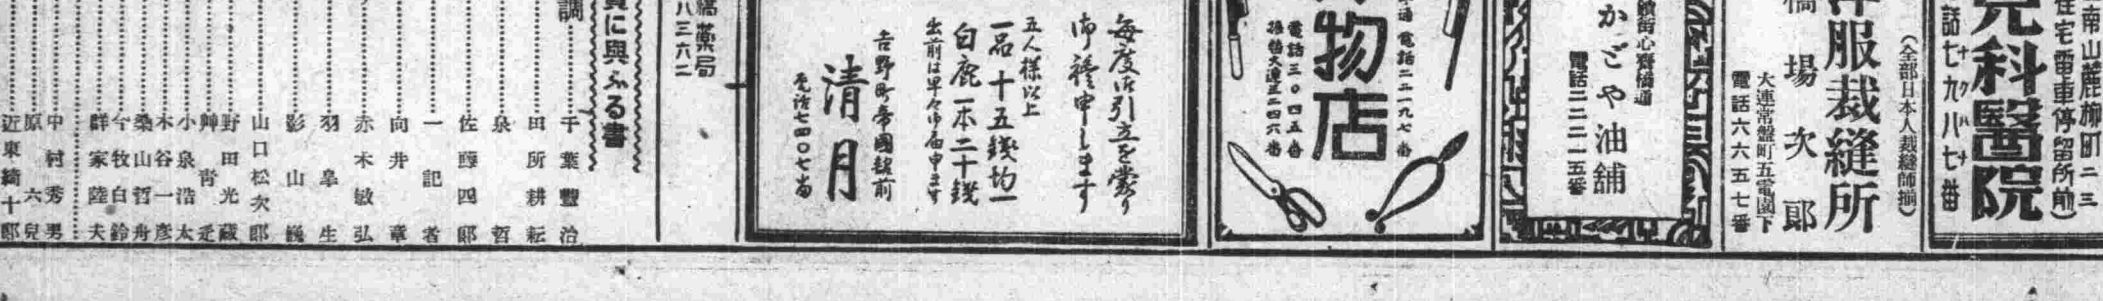 南山麓柳町二三
住宅電車停留所前)
児科醫院
話七九八七番
ナクハナ
(全部日本人裁縫師揃)
洋服裁縫所
大連常盤町五電園下
電話六六五七番
橋場次郎
街心齋橋通
かどや油舗
電話二二二一五番
電話二二一九七番
物店
電話三〇四五番
振替大連三二四六番
毎度御引立を蒙り
御禮申します
五人様以上
一品十五錢均一
白鹿一本二十錢
出前は早々御届申ます
吉野町帝國館前
清月
電話七四〇七番
橋藥局
八三六二
賀に與ふる書
調
千葉豐治
田所耕耘
泉哲
佐藤四郎
一記者
向井章
赤木敏弘
羽皐生
影山巍
山口松次郎
野田光藏
艸青
小泉浩太
木谷一彦
桑山哲舟
今牧白鈴
群家陸夫
中村秀男
原六兒
近東綺十郎